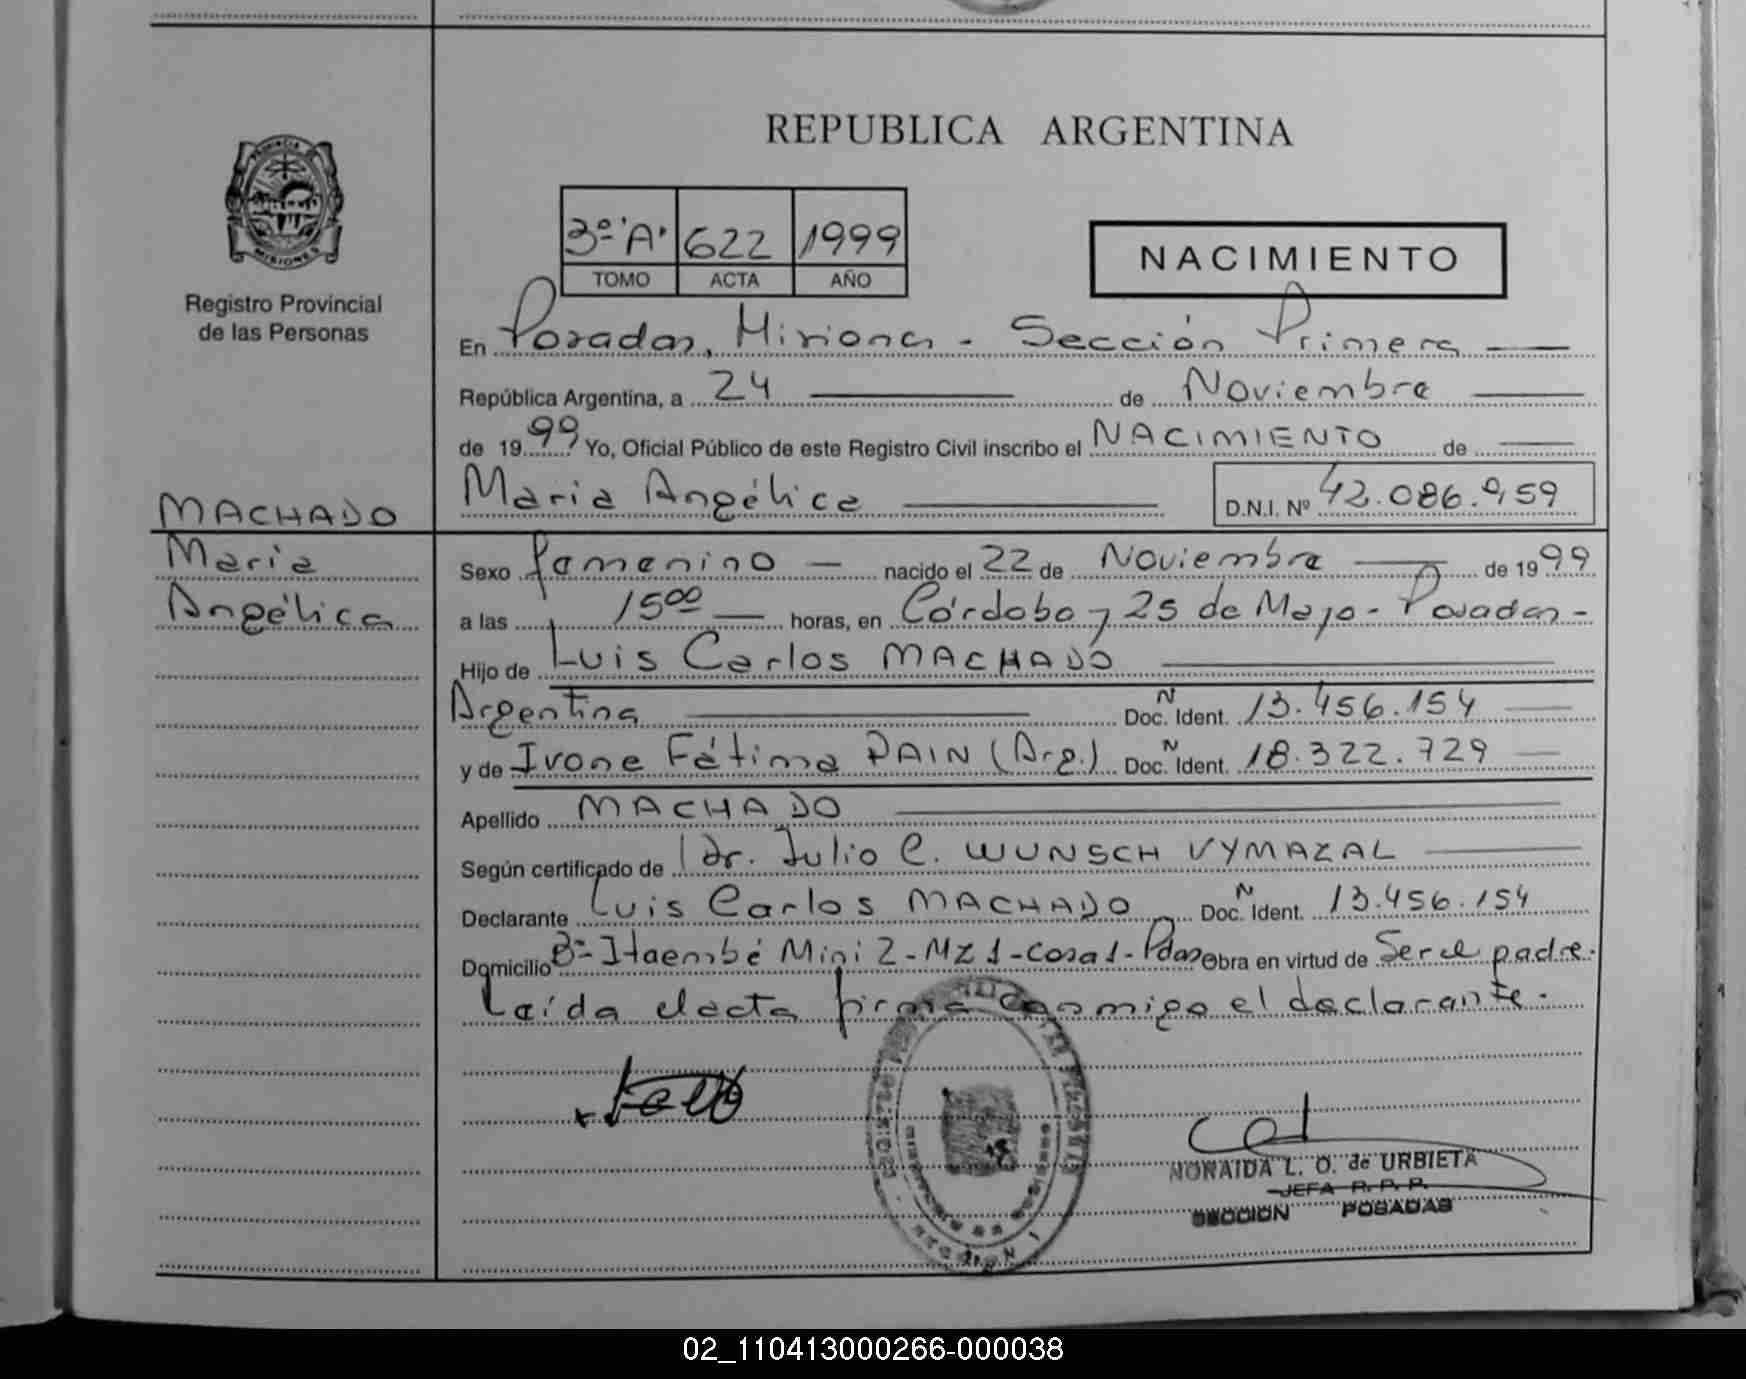 REPUBLICA ARGENTINA
PROVINCIA DE
MISIONES
Registro Provincial
de las Personas
3º "A" 622 1999
TOMO ACTA AÑO
NACIMIENTO
En Posadas, Misiones - Sección Primera
República Argentina, a 24 de Noviembre
de 1999 Yo, Oficial Público de este Registro Civil inscribo el NACIMIENTO de
Maria Angélica D.N.I. Nº 42.086.959
MACHADO
Maria
Angélica
Sexo femenino nacido el 22 de Noviembre de 1999
a las 15⁰⁰ horas, en Córdoba y 25 de Mayo - Posadas -
Hijo de Luis Carlos MACHADO
Argentina Doc. N Ident. 13.456.154
y de Ivone Fátima PAIN (Arg.) Doc. N Ident. 18.322.729
Apellido MACHADO
Según certificado de Dr. Julio C. WUNSCH VYMAZAL
Declarante Luis Carlos MACHADO Doc. N Ident. 13.456.154
Domicilio Bº Itaembé Mini 2 - Mz 1 - casa 1 - Pdas Obra en virtud de Ser el padre.
Leída el acta firma conmigo el declarante.
NORAIDA L. O. de URBIETA
JEFA R. P. P.
SECCION POSADAS
02_110413000266-000038